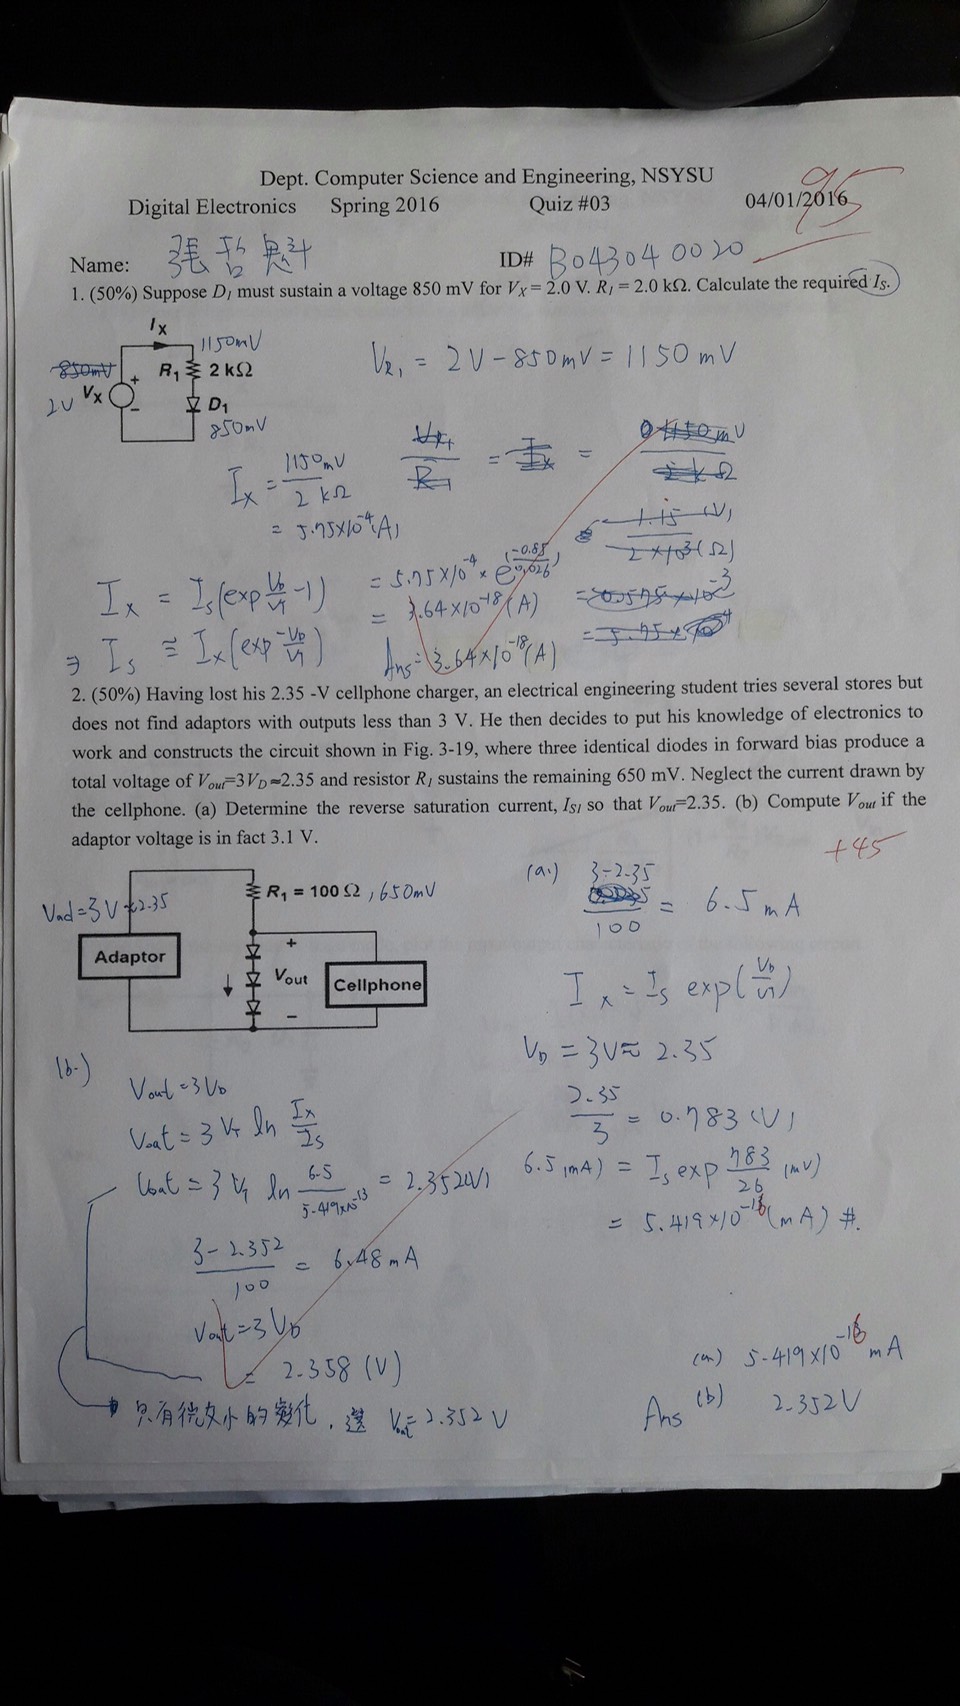 Dept. Computer Science and Engineering, NSYSU
Digital Electronics Spring 2016 Quiz #03 04/01/2016
95
Name: 張哲魁 ID# B043040020
1. (50%) Suppose D₁ must sustain a voltage 850 mV for Vₓ = 2.0 V. R₁ = 2.0 kΩ. Calculate the required Iₛ.
Iₓ
1150mV
850mV
R₁ 2 kΩ
2V Vₓ + -
D₁
850mV
V_R₁ = 2V - 850mV = 1150 mV
Iₓ = 1150mV / 2 kΩ
= 5.75×10⁻⁴(A)
Iₓ = Iₛ(exp V_D/V_T - 1)
⇒ Iₛ ≅ Iₓ(exp -V_D/V_T)
= 5.75×10⁻⁴ × e^(-0.85/0.026)
= 3.64×10⁻¹⁸(A)
Ans = 3.64×10⁻¹⁸(A)
1.15 (V) / 2×10³(Ω)
= 0.575×10⁻³
2. (50%) Having lost his 2.35 -V cellphone charger, an electrical engineering student tries several stores but
does not find adaptors with outputs less than 3 V. He then decides to put his knowledge of electronics to
work and constructs the circuit shown in Fig. 3-19, where three identical diodes in forward bias produce a
total voltage of V_out=3V_D≈2.35 and resistor R₁ sustains the remaining 650 mV. Neglect the current drawn by
the cellphone. (a) Determine the reverse saturation current, I_S1 so that V_out=2.35. (b) Compute V_out if the
adaptor voltage is in fact 3.1 V.
+45
R₁ = 100 Ω , 650mV
Vad = 3V 2.35
Adaptor
+
Vout
-
Cellphone
(a.) 3-2.35 / 100 = 6.5 mA
Iₓ = Iₛ exp(V_D/V_T)
V_D = 3V ≈ 2.35
2.35 / 3 = 0.783 (V)
6.5 (mA) = Iₛ exp 783/26 (mV)
= 5.419×10⁻¹⁶(mA) #.
(b.)
Vout = 3V_D
Vout = 3V_T ln Iₓ/Iₛ
Vout = 3V_T ln 6.5 / 5.419×10⁻¹³ = 2.352(V)
3 - 2.352 / 100 = 6.48 mA
Vout = 3V_D
= 2.358 (V)
只有微小的變化, 選 Vout = 2.352 V
Ans (a) 5.419×10⁻¹⁶ mA
(b) 2.352V